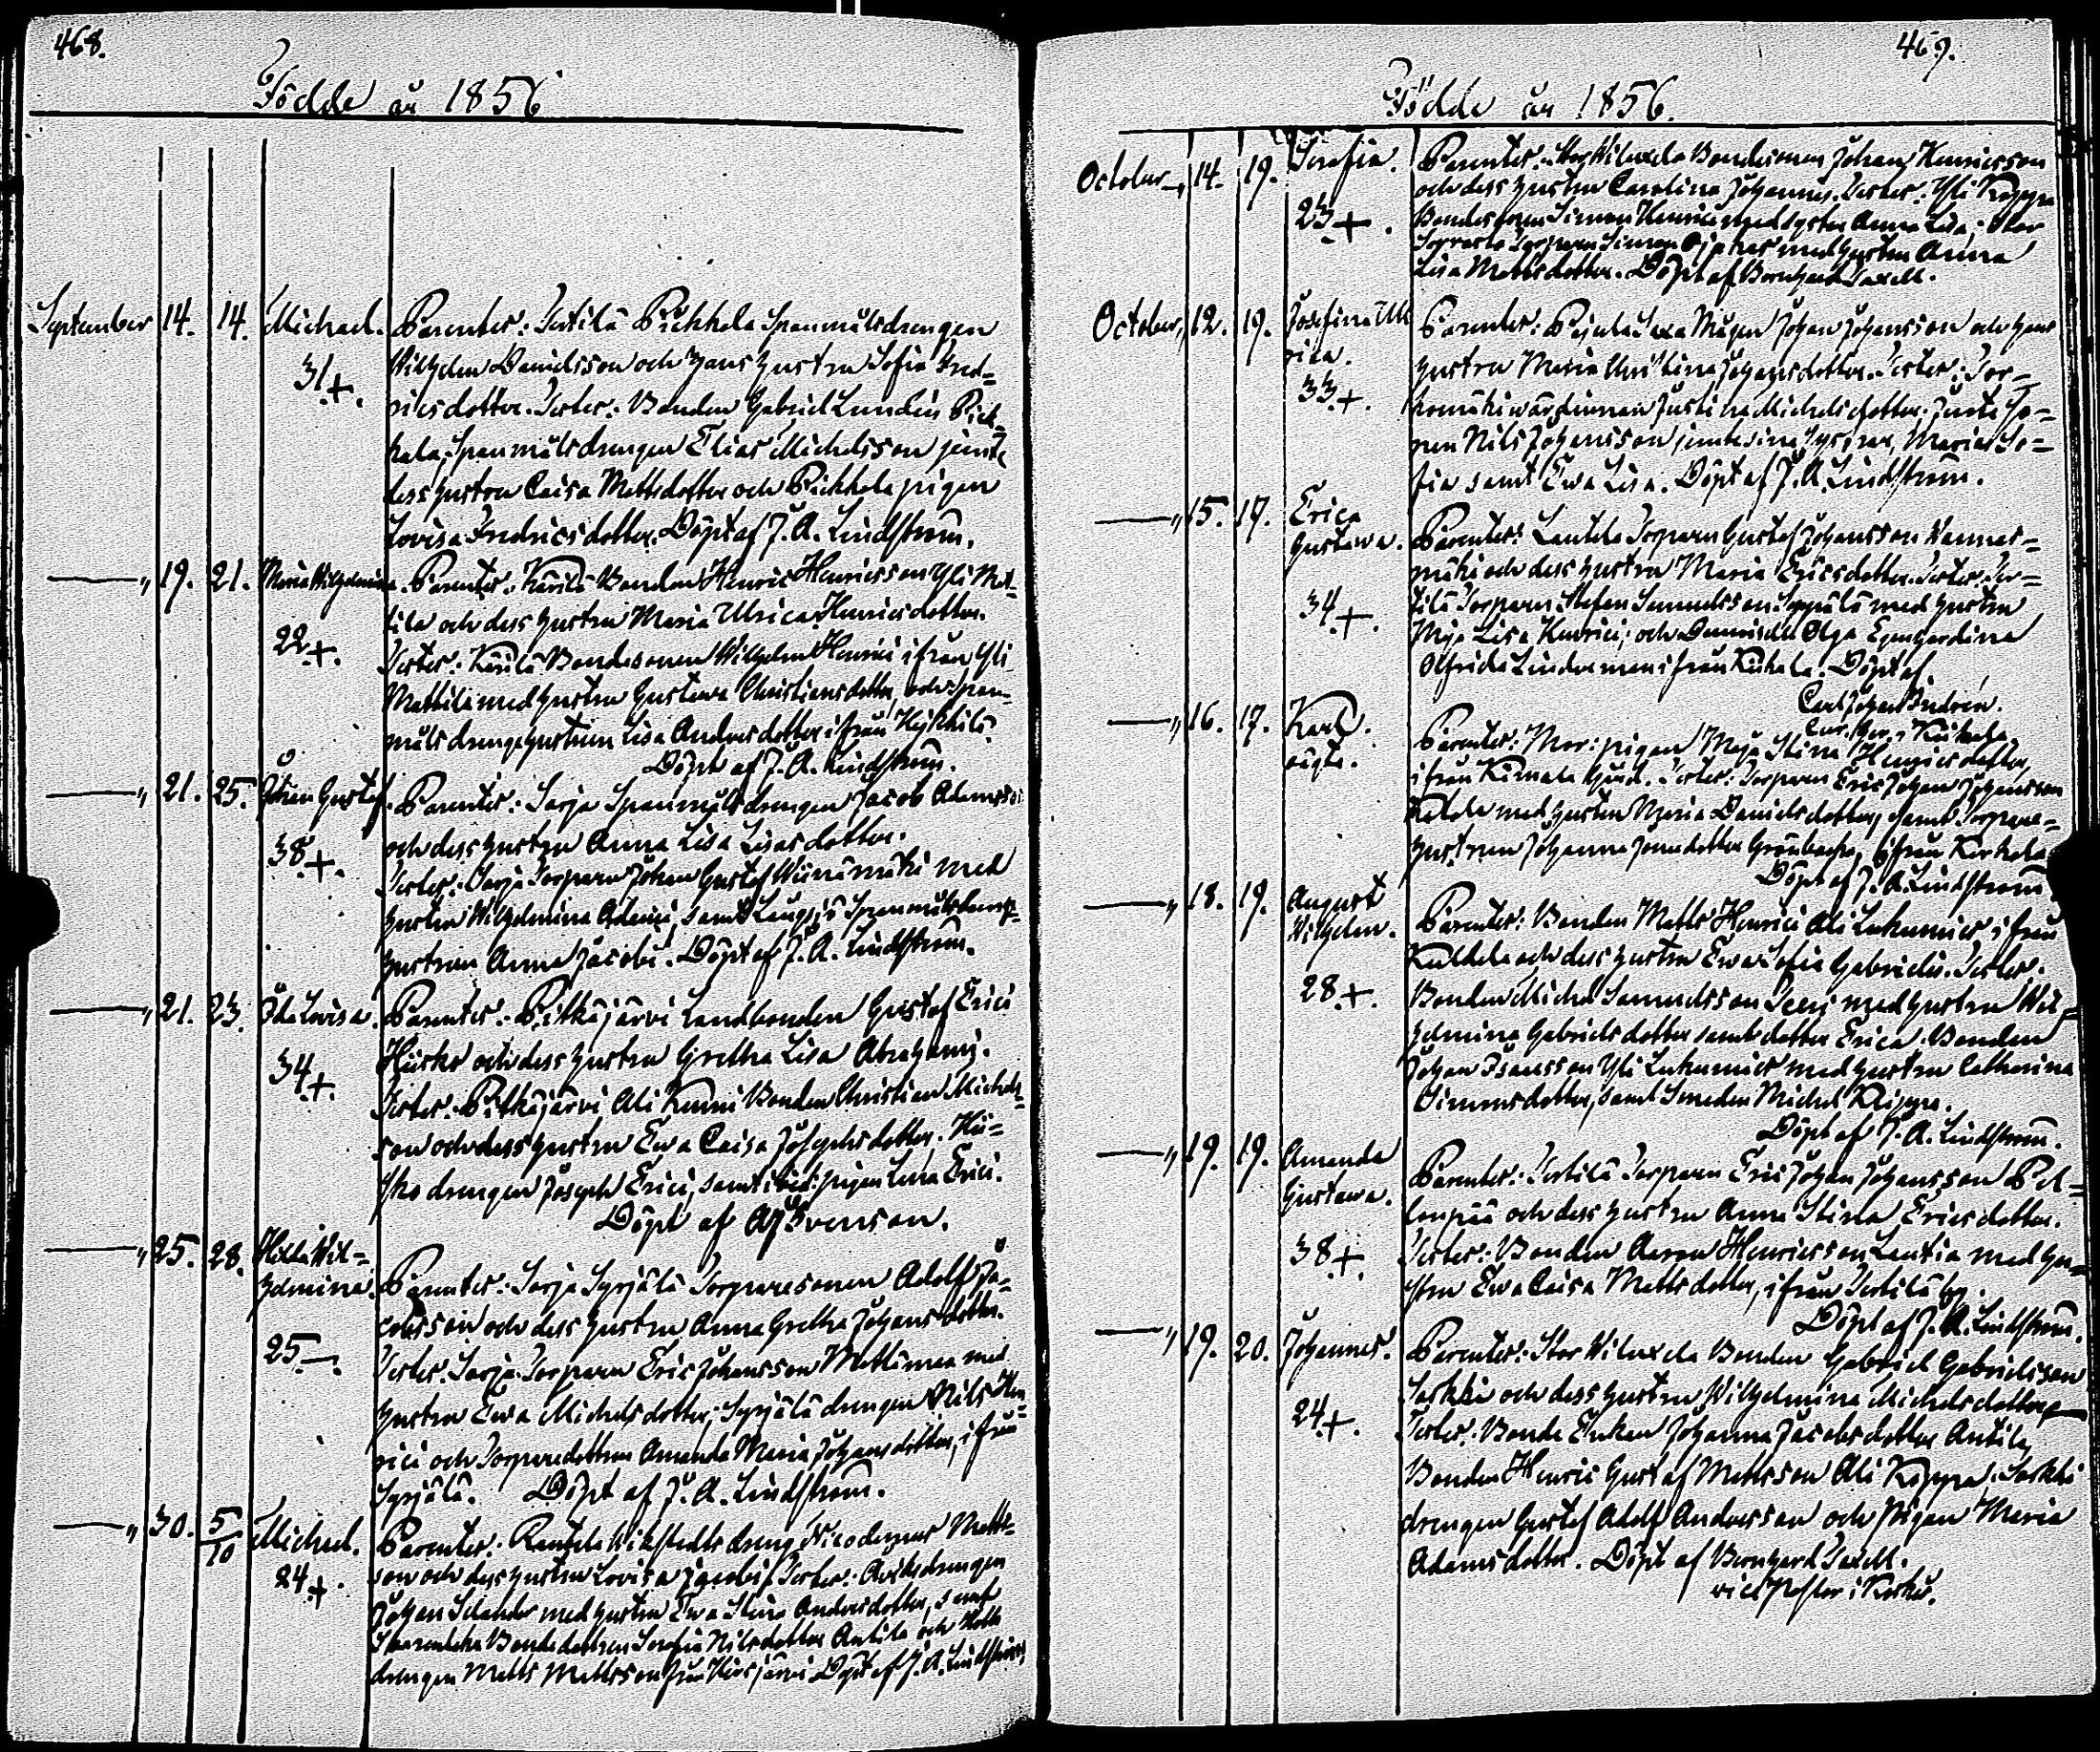 468.
Födde år 1856
September 14. 14. Michael. Parenter: Tertilä Pickhala Spanmålsdrengen
Wilhelm Danielsson och hans hustru Sofia Fred=
31+.
ricsdotter. Tester: Bonden Gabriel Lundén Pick=
hala, Spanmålsdrengen Elias Michelsson jemte
dess hustru Caisa Mattsdotter och Pickhala pigan
Lovisa Fredricsdotter. Döpt af J. A. Lindström.
—„ 19. 21. Maria Wilhelmina. Parenter: Kärilä Bonden Henric Henricsson Yli Mat=
tila och dess hustru Maria Ulrica Henricsdotter.
22+.
Tester: Kärilä Bondesonen Wilhelm Henrici ifrån Yli
Mattila med hustru Gustava Christiansdotter, och Span=
målsdrengehustrun Lisa Andersdotter ifrån
Döpt af J. A. Lindström.
—„ 21. 25. Johan Gustaf. Parenter: Sarja Spanmålsdrengen Jacob Adamsson
och dess hustru Anna Lisa Lisasdotter.
38+.
Tester: Sarja Torparen Johan Gustaf Wiinamäki med
hustru Wilhelmina Adami, samt Spanmålsdrengs=
hustrun Anna Jacobi. Döpt af J. A. Lindström.
—„ 21. 23. Ida Lovisa. Parenter: Pitkäjärvi Landbonden Gustaf Erici
Hiisko och dess hustru Gretha Lisa Abrahami.
34+.
Tester: Pitkäjärvi Ali Bonden Christian Michels=
son och dess hustru Ewa Caisa Josephsdotter. Hii=
sko drengen Joseph Erici, samt ibid: pigan Lena Erici.
Döpt af Svenson.
—„ 25. 28. Hilda Wil=
helmina. Parenter: Sarja Syrjälä Torparesonen Adolf Ja=
cobsson och dess hustru Anna Gretha Johansdotter.
25—.
Tester: Sarja Torparen Eric Johansson Mattämaa med
hustru Ewa Michelsdotter, Syrjälä drengen Nils Hen=
rici och Torparedottren Amanda Maria Johansdotter, ifrån
Syrjälä. Döpt af J. A. Lindström.
—„ 30. 5/10 Michael. Parenter: Rautela Wikstedts dreng Nicodemus Matts=
24+.
son och dess hustru Lovisa Jacobi. Tester: drengen
Johan Selander med hustru Ewa Stina Andersdotter, samt
Bondedottren Serafia Nilsdotter Antila och
drengen Matts Mattsson Döpt af J. A. Lindström.
469.
Födde år 1856.
October „ 14. 19. Serafia. Parenter: Stor Wilaxela Bondesonen Johan Henricsson
och dess hustru Carolina Johannis. Tester: Yli Kåppa
23+.
Bondesonen Simon Henrici med syster Anna Lisa; Stor
Torparen Simon med hustru Anna
Lisa Mattsdotter. Döpt af Bernhard Taxell.
October „ 12. 19. Josefina Ulrica. Parenter: Johan Johansson och hans
hustru Maria Christina Johansdotter. Tester: Tor=
33+.
värdinnan Justina Michelsdotter. Juuta So=
nen Nils Johansson jemte sina systrar, Maria So=
fia samt Ewa Lisa. Döpt af J. A. Lindström.
—„ 15. 17. Erica
Gustawa. Parenter: Lautela Torparen Gustaf Johansson Wanner=
mäki och dess hustru Maria Ericsdotter. Tester: Ter=
34+.
tilä Torparen Stefan Samuelsson Seppälä med hustru
Maja Lisa Henrici; och Demoiselle Olga Emgardina
Alfrida Linderman ifrån Kiikala. Döpt af
Carl Johan
i Kiikala.
—„ 16. 17. Karl.
oägta. Parenter: Mor: pigan Maja Stina Henricsdotter,
ifrån gård. Tester: Torparen Eric Johan Johansson
med hustru Maria Danielsdotter, samt Torpare=
hustrun Johanna Jonasdotter Grönbacka, ifrån
Döpt af J. A. Lindström
—„ 18. 19. August
Wilhelm. Parenter: Bonden Matts Henrici Ali ifrån
och dess hustru Ewa Sofia Gabrielis. Tester:
28+.
Bonden Michel Samuelsson med hustru Wil=
helmina Gabrielsdotter samt dotter Erica. Bonden
Johan Isacsson Yli med hustru Catharina
Simonsdotter, samt Smeden Michel Kåppa.
Döpt af J. A. Lindström.
—„ 19. 19. Amanda
Gustawa. Parenter: Tertilä Torparen Eric Johan Johansson Pel=
lonpää och dess hustru Anna Stina Ericsdotter.
38+.
Tester: Bonden Aaron Henricsson Lautia med hu=
stru Ewa Caisa Mattsdotter, ifrån Tertilä by.
Döpt af J. A. Lindström.
—„ 19. 20. Johannes. Parenter: Stor Wilaxela Bonden Gabriel Gabrielsson
och dess hustru Wilhelmina Michelsdotter
24+.
Tester: Bonde Enkan Johanna Jacobsdotter Antila,
Bonden Henric Gustaf Mattsson Ali Kåppa.
drengen Gustaf Adolf Andersson och Pigan Maria
Adamsdotter. Döpt af Bernhard Taxell.
vice Pastor i